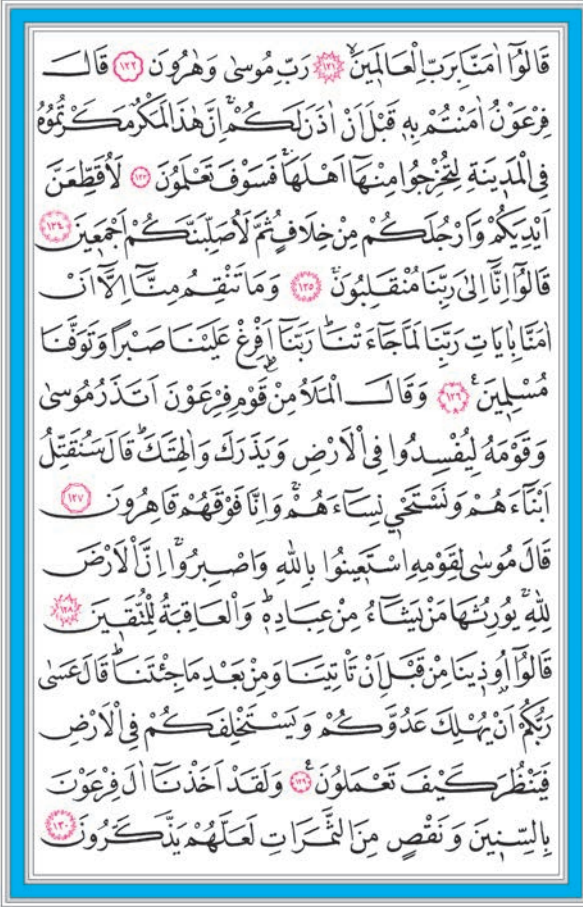 قَالُٓوا اٰمَنَّا بِرَبِّ الْعَالَمٖينَۙ ﴿١٢١﴾ رَبِّ مُوسٰى وَهٰرُونَ ﴿١٢٢﴾ قَالَ
فِرْعَوْنُ اٰمَنْتُمْ بِهٖ قَبْلَ اَنْ اٰذَنَ لَكُمْۚ اِنَّ هٰذَا لَمَكْرٌ مَكَرْتُمُوهُ
فِي الْمَدٖينَةِ لِتُخْرِجُوا مِنْهَٓا اَهْلَهَاۚ فَسَوْفَ تَعْلَمُونَ ﴿١٢٣﴾ لَاُقَطِّعَنَّ
اَيْدِيَكُمْ وَاَرْجُلَكُمْ مِنْ خِلَافٍ ثُمَّ لَاُصَلِّبَنَّكُمْ اَجْمَعٖينَ ﴿١٢٤﴾
قَالُٓوا اِنَّٓا اِلٰى رَبِّنَا مُنْقَلِبُونَۚ ﴿١٢٥﴾ وَمَا تَنْقِمُ مِنَّٓا اِلَّٓا اَنْ
اٰمَنَّا بِاٰيَاتِ رَبِّنَا لَمَّا جَٓاءَتْنَاۜ رَبَّنَٓا اَفْرِغْ عَلَيْنَا صَبْرًا وَتَوَفَّنَا
مُسْلِمٖينَ ﴿١٢٦﴾ وَقَالَ الْمَلَاُ مِنْ قَوْمِ فِرْعَوْنَ اَتَذَرُ مُوسٰى
وَقَوْمَهُ لِيُفْسِدُوا فِي الْاَرْضِ وَيَذَرَكَ وَاٰلِهَتَكَۜ قَالَ سَنُقَتِّلُ
اَبْنَٓاءَهُمْ وَنَسْتَحْيٖ نِسَٓاءَهُمْۚ وَاِنَّا فَوْقَهُمْ قَاهِرُونَ ﴿١٢٧﴾
قَالَ مُوسٰى لِقَوْمِهِ اسْتَعٖينُوا بِاللّٰهِ وَاصْبِرُواۚ اِنَّ الْاَرْضَ
لِلّٰهِ يُورِثُهَا مَنْ يَشَٓاءُ مِنْ عِبَادِهٖۜ وَالْعَاقِبَةُ لِلْمُتَّقٖينَ ﴿١٢٨﴾
قَالُٓوا اُو۫ذٖينَا مِنْ قَبْلِ اَنْ تَأْتِيَنَا وَمِنْ بَعْدِ مَا جِئْتَنَاۜ قَالَ عَسٰى
رَبُّكُمْ اَنْ يُهْلِكَ عَدُوَّكُمْ وَيَسْتَخْلِفَكُمْ فِي الْاَرْضِ
فَيَنْظُرَ كَيْفَ تَعْمَلُونَ ﴿١٢٩﴾ وَلَقَدْ اَخَذْنَٓا اٰلَ فِرْعَوْنَ
بِالسِّنٖينَ وَنَقْصٍ مِنَ الثَّمَرَاتِ لَعَلَّهُمْ يَذَّكَّرُونَ ﴿١٣٠﴾